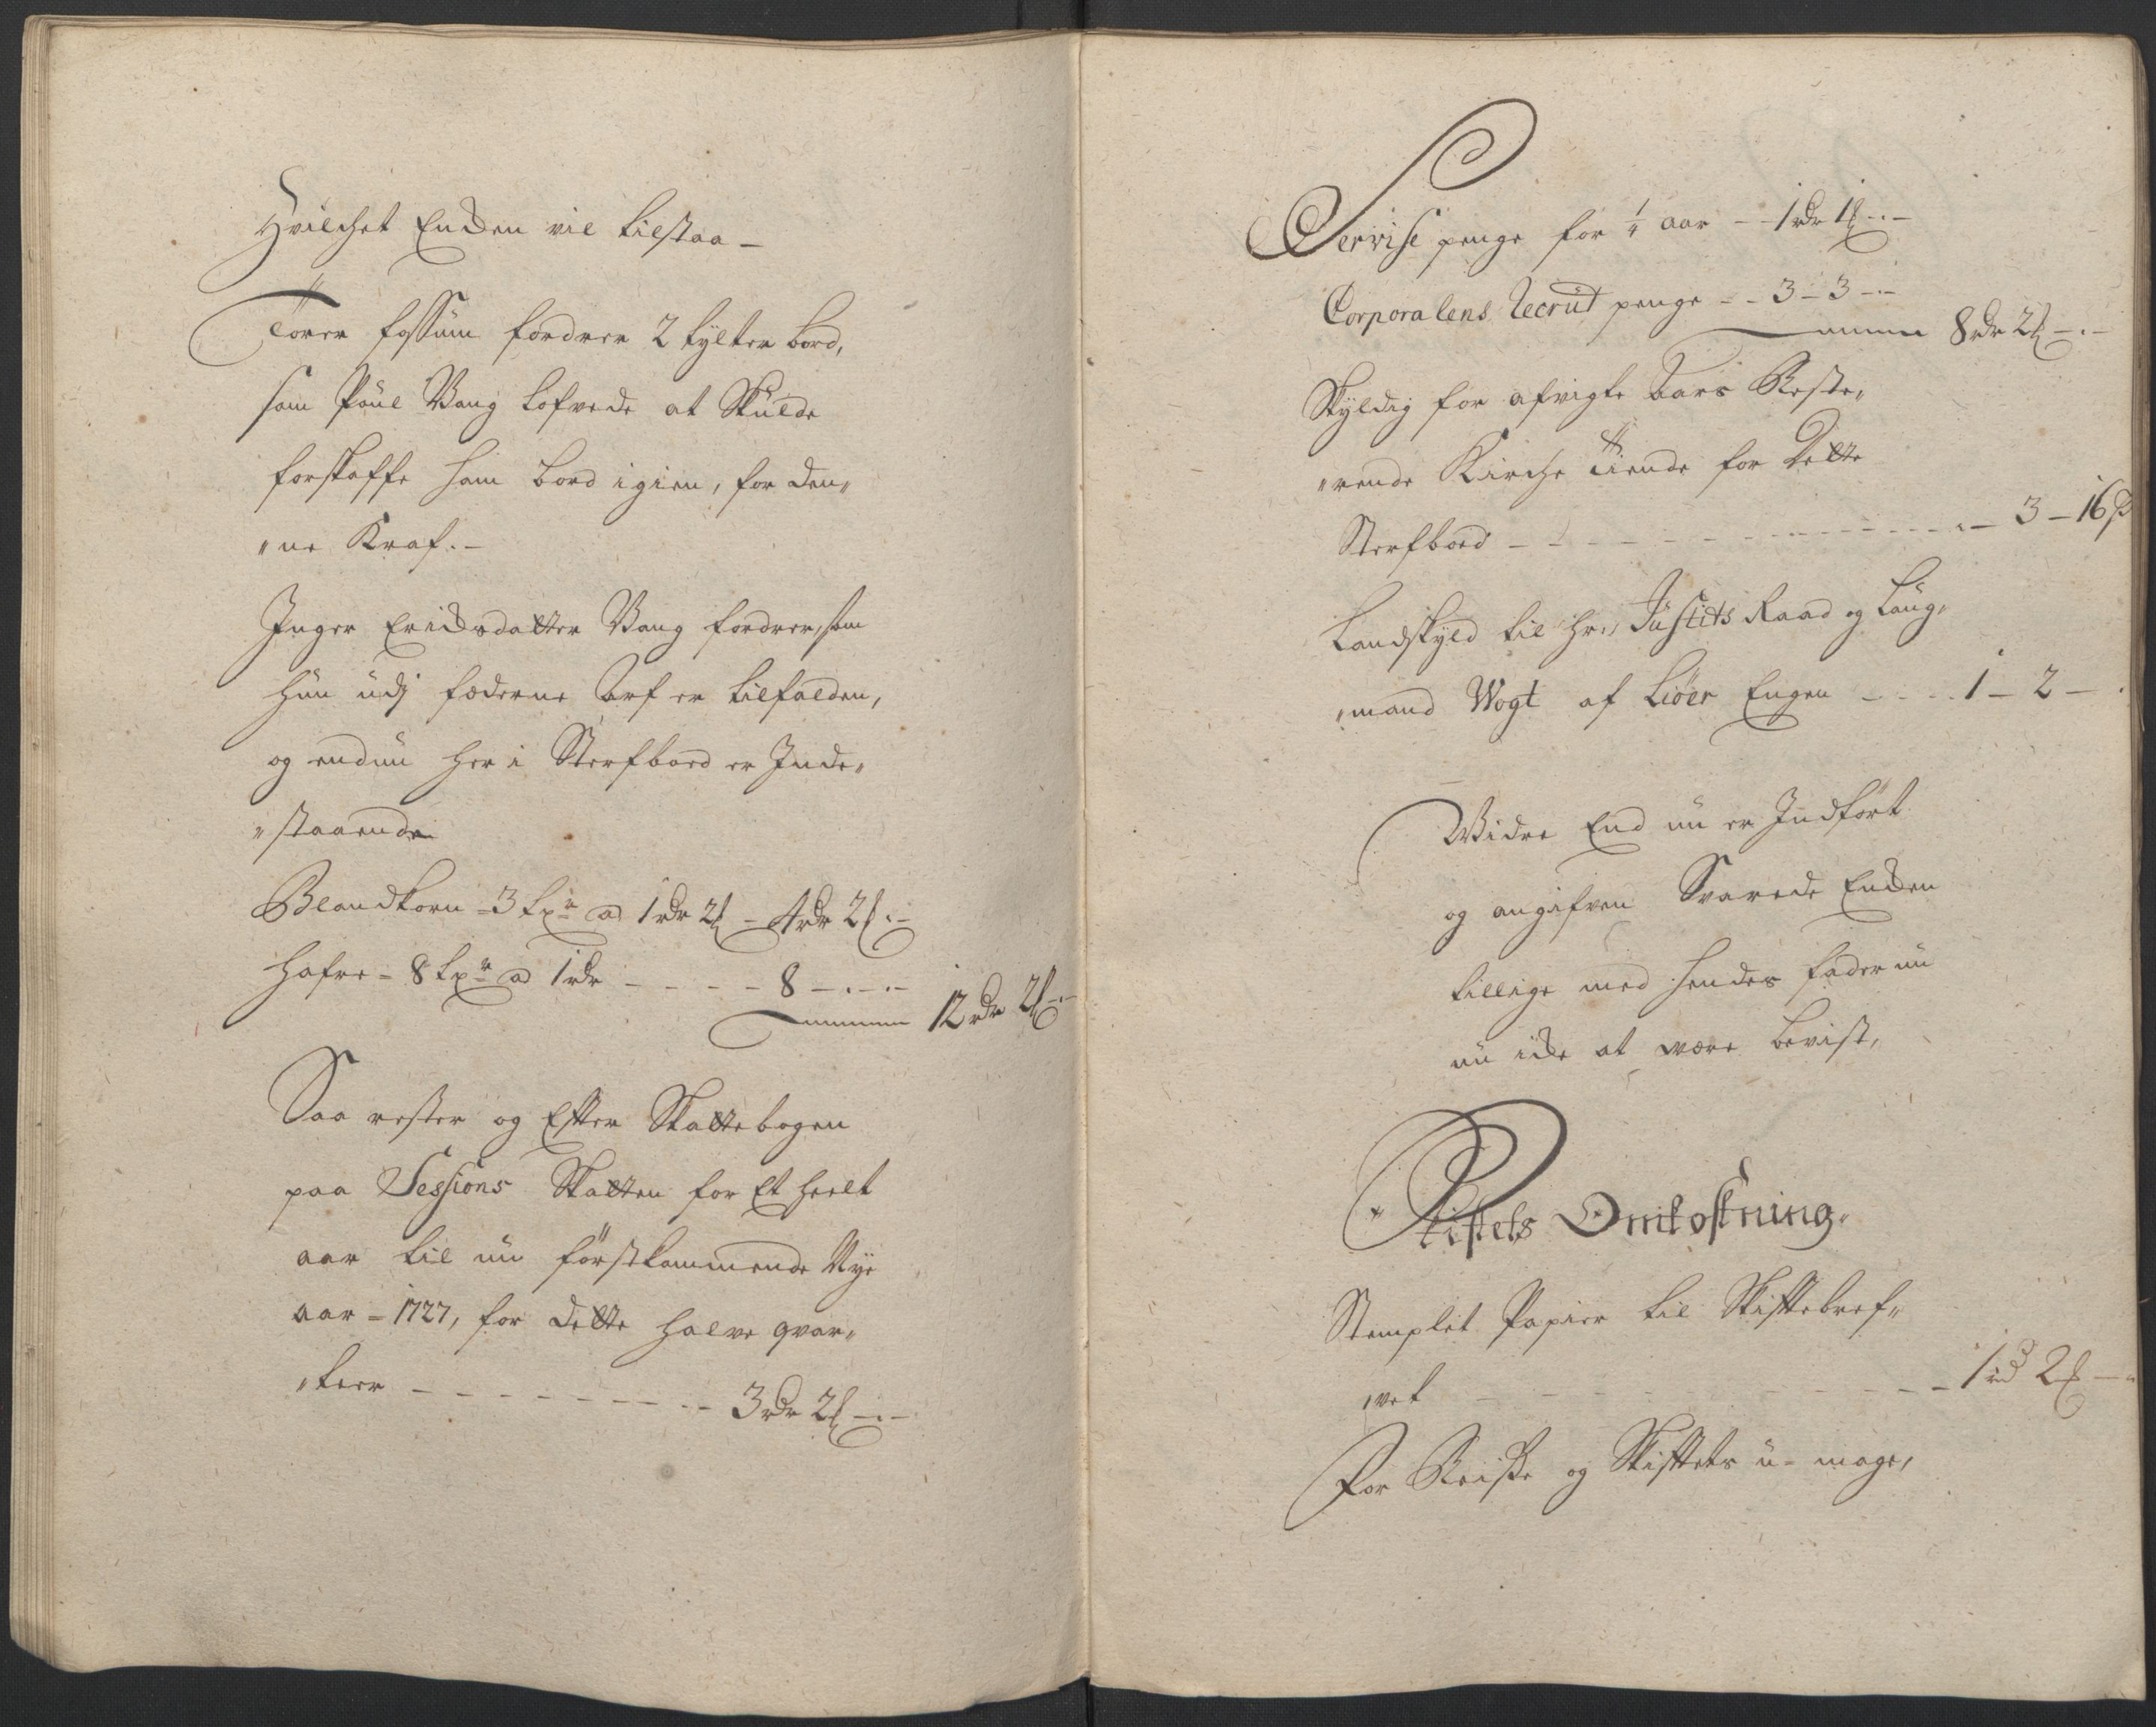 Hvilchet Encken vil tilstaa –
Torer Fossum fordrer 2 tylter bord,
som Poul Vang lofvede at skulde
forskaffe ham bord igien, for den„
„ne Kraf. –
Inger Ericksdatter Vang fordrer, som
hun udj fæderne Arf er tilfalden,
og endnu her i Sterfboed er Inde„
„staaende
Blandkorn – 3 tr a 1 rdr 2 – 4 rdr 2 . –
Hafre – 8 tr a 1 rdr – – – – 8 – . –
12 rdr 2 –
Saa rester og Efter Skattebogen
paa Sessions Skatten for Et heelt
aar til nu förstkommende Nye
aar – 1727, for dette halve qvar„
„teer – – – – – – – 3 rdr 2 – . –
Servise penge for 1/4 aar – – 1 rdr 1 – . –
Corporalens Recrut penge – – 3 – 3 – . –
8 rdr 2 – . –
Skyldig for afvigte Aars Reste„
„rende Kirche Tiende for Dette
Sterfboed – – – – – – – – – – 3 – 16 ß
Landskyld til Hr. Justits Raad og Laug„
„mand Wogt af Liöer Engen – – – 1 – 2 – .
Widre End nu er Indfört
og angifven Svarede Encken
tillige med hendes fader nu
nu icke at være bevist,
Skiftets Omkostning.
Stemplet Papier til Skiftebref„
„vet – – – – – – – – 1 rd 2 –
For Reiße og Skiftets u-mage,